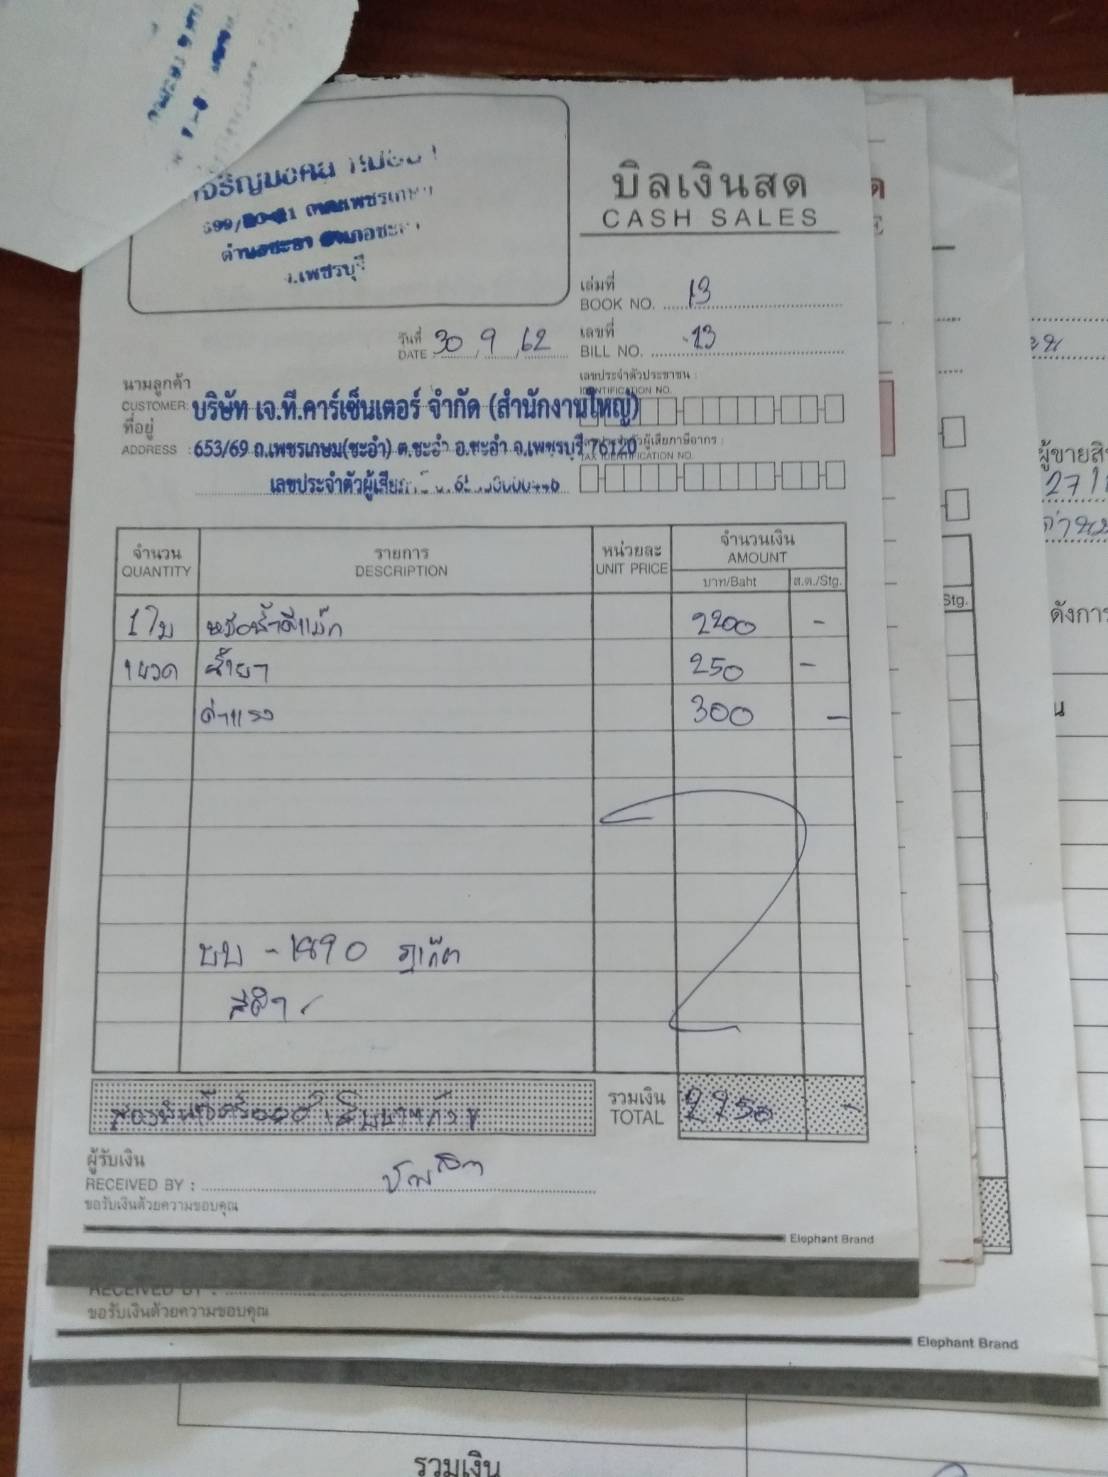 เจริญมงคล
399/20-21 ถนนเพชรเกษม
ตำบลชะอำ อำเภอชะอำ
จ.เพชรบุรี
บิลเงินสด
CASH SALES
เล่มที่
BOOK NO. 13
วันที่
DATE 30 / 9 / 62
เลขที่
BILL NO. 13
นามลูกค้า
CUSTOMER: บริษัท เจ.ที.คาร์เซ็นเตอร์ จำกัด (สำนักงานใหญ่)
เลขประจำตัวประชาชน :
IDENTIFICATION NO.
ที่อยู่
ADDRESS : 653/69 ถ.เพชรเกษม(ชะอำ) ต.ชะอำ อ.ชะอำ จ.เพชรบุรี 76120
เลขประจำตัวผู้เสียภาษีอากร :
TAX IDENTIFICATION NO.
เลขประจำตัวผู้เสีย
จำนวน
QUANTITY
รายการ
DESCRIPTION
หน่วยละ
UNIT PRICE
จำนวนเงิน
AMOUNT
บาท/Baht ส.ต./Stg.
1 ใบ หม้อน้ำดีแม็ก 2200 -
1 ขวด น้ำยา 250 -
ค่าแรง 300 -
บบ - 1890 ภูเก็ต
สีดำ
รวมเงิน
TOTAL 2750 -
ผู้รับเงิน
RECEIVED BY :
ขอรับเงินด้วยความขอบคุณ
Elephant Brand
RECEIVED BY :
ขอรับเงินด้วยความขอบคุณ
Elephant Brand
รวมเงิน
Stg.
ผู้ขายสิ
271
ดังการ